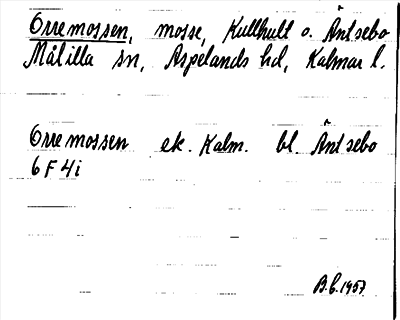 Orremossen, mosse, Kullhult o. Äntsebo
Målilla sn, Aspelands hd, Kalmar l.
Orremossen ek. Kalm. bl. Äntsebo
6 F 4i
B.L. 1957